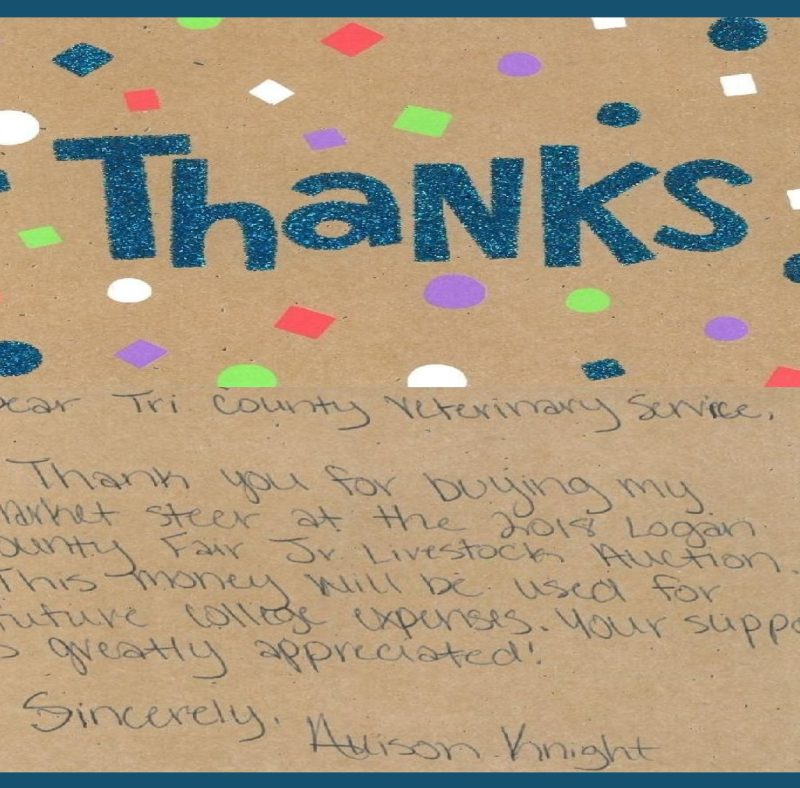 Thanks
Dear Tri County Veterinary Service,
Thank you for buying my
market steer at the 2018 Logan
County Fair Jr Livestock Auction.
This money will be used for
future college expenses. Your suppo
is greatly appreciated!
Sincerely,
Allison Knight